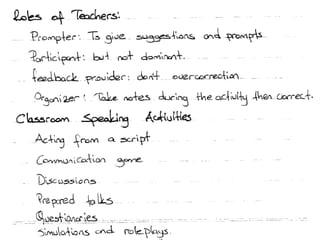 Roles of Teachers:
Prompter: To give suggestions and prompts
Participant: but not dominant.
feedback provider: don't overcorrection
Organizer: Take notes during the activity then correct.
Classroom Speaking Activities
Acting from a script
Communication game
Discussions
Prepared talks
Questionaries
Simulations and roleplays.